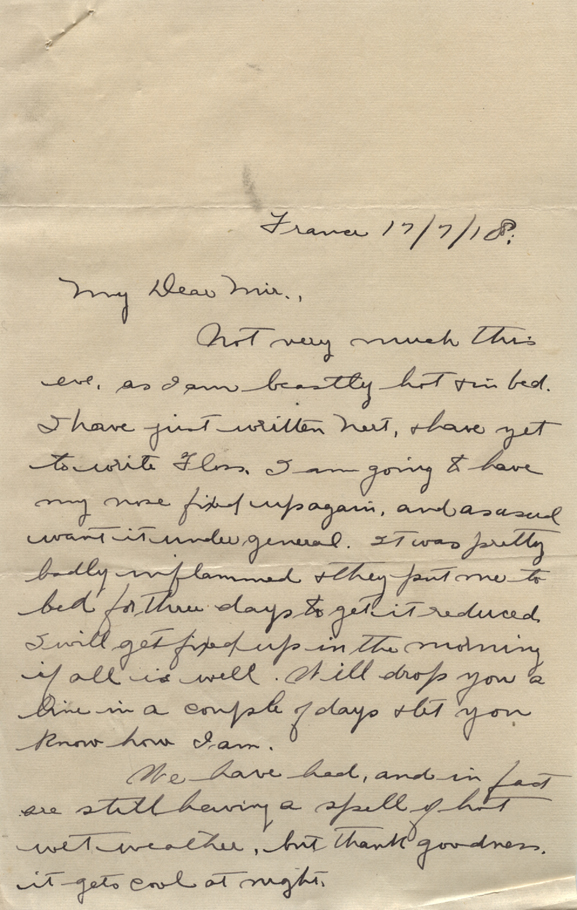 France 17/7/18.
My Dear Mir.,
Not very much this
eve, as I am beastly hot & in bed.
I have just written Nert, & have yet
to write Floss. I am going to have
my nose fixed up again, and as usual
want it under general. It was pretty
badly inflammed & they put me to
bed for three days to get it reduced
I will get fixed up in the morning
if all is well. Will drop you a
line in a couple of days & let you
know how I am.
We have had, and in fact
are still having a spell of hot
wet weather, but thank goodness.
it gets cool at night.